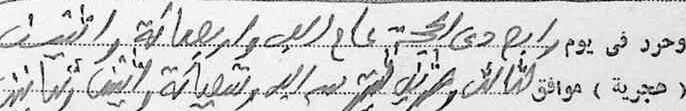 وحرر فى يوم رابع ذى الحجة عام الف واربعمائة واثنين
( هجرية ) موافق لثالث وعشرين الف وتسعمائة واثنين وثمانين